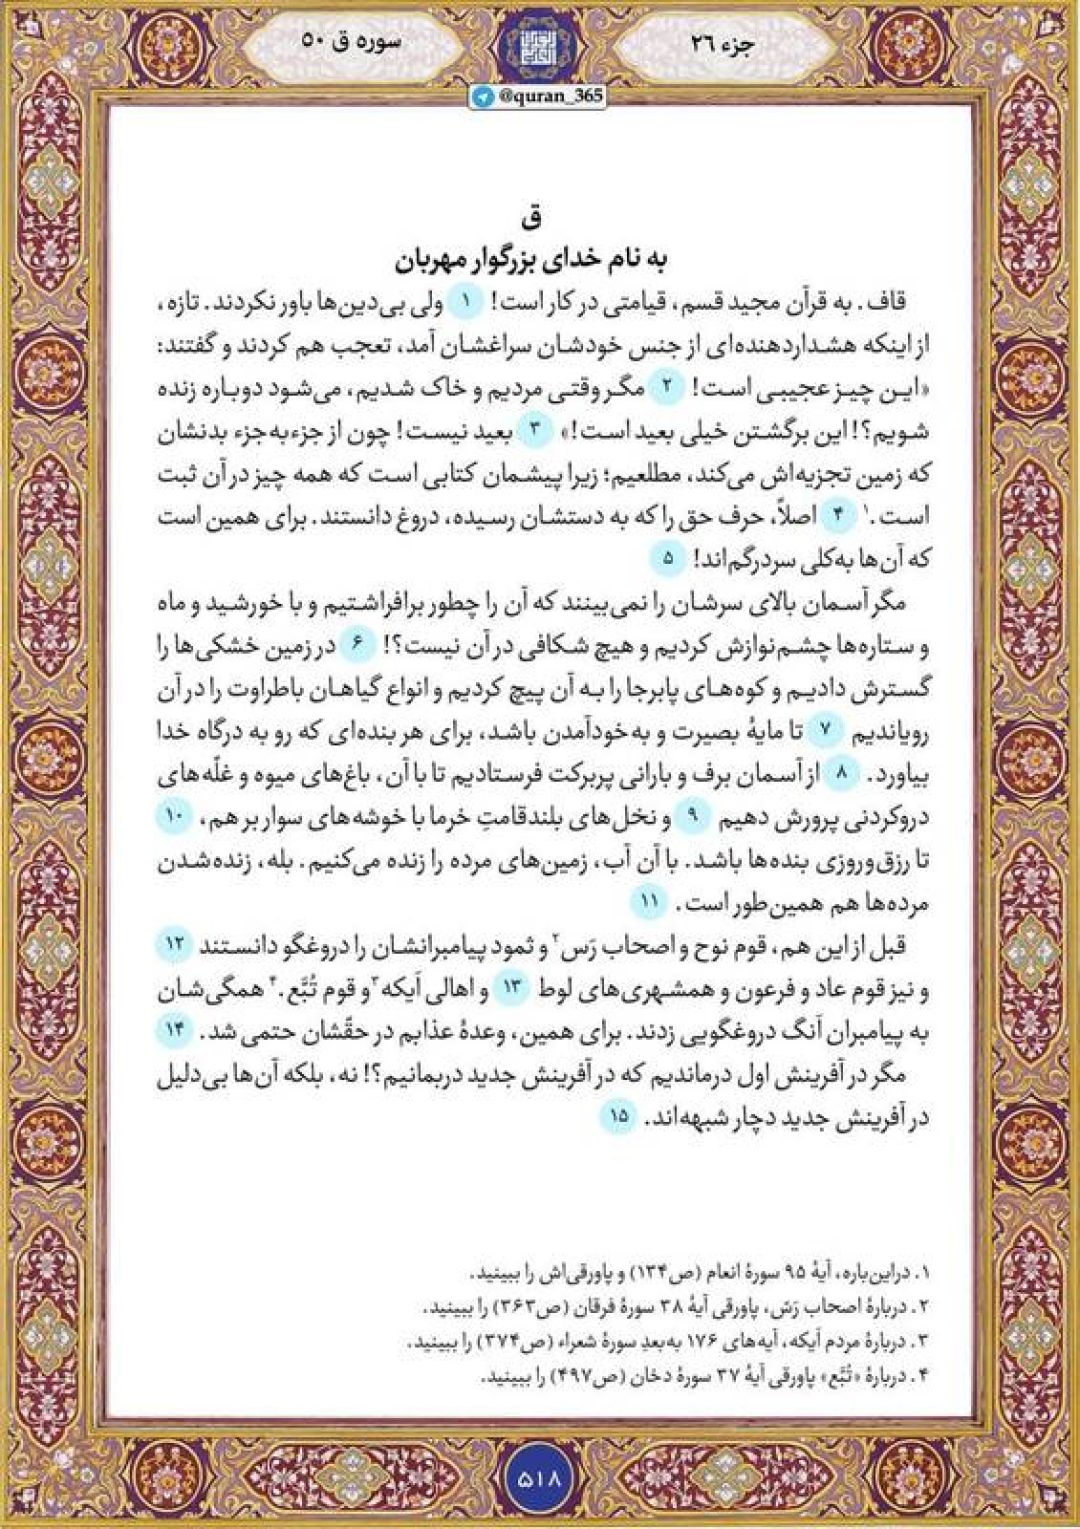 جزء ۲۶
سوره ق ۵۰
@quran_365
ق
به نام خدای بزرگوار مهربان
قاف. به قرآن مجید قسم، قیامتی در کار است! ۱ ولی بی‌دین‌ها باور نکردند. تازه،
از اینکه هشداردهنده‌ای از جنس خودشان سراغشان آمد، تعجب هم کردند و گفتند:
«این چیز عجیبی است! ۲ مگر وقتی مردیم و خاک شدیم، می‌شود دوباره زنده
شویم؟! این برگشتن خیلی بعید است!» ۳ بعید نیست! چون از جزءبه‌جزء بدنشان
که زمین تجزیه‌اش می‌کند، مطلعیم؛ زیرا پیشمان کتابی است که همه چیز در آن ثبت
است.۱ ۴ اصلاً، حرف حق را که به دستشان رسیده، دروغ دانستند. برای همین است
که آن‌ها به‌کلی سردرگم‌اند! ۵
مگر آسمان بالای سرشان را نمی‌بینند که آن را چطور برافراشتیم و با خورشید و ماه
و ستاره‌ها چشم‌نوازش کردیم و هیچ شکافی در آن نیست؟! ۶ در زمین خشکی‌ها را
گسترش دادیم و کوه‌های پابرجا را به آن پیچ کردیم و انواع گیاهان باطراوت را در آن
رویاندیم ۷ تا مایهٔ بصیرت و به‌خودآمدن باشد، برای هر بنده‌ای که رو به درگاه خدا
بیاورد. ۸ از آسمان برف و بارانی پربرکت فرستادیم تا با آن، باغ‌های میوه و غلّه‌های
دروکردنی پرورش دهیم ۹ و نخل‌های بلندقامتِ خرما با خوشه‌های سوار بر هم، ۱۰
تا رزق‌وروزی بنده‌ها باشد. با آن آب، زمین‌های مرده را زنده می‌کنیم. بله، زنده‌شدن
مرده‌ها هم همین‌طور است. ۱۱
قبل از این هم، قوم نوح و اصحاب رَس۲ و ثمود پیامبرانشان را دروغگو دانستند ۱۲
و نیز قوم عاد و فرعون و همشهری‌های لوط ۱۳ و اهالی اَیکه۳ و قوم تُبَّع.۴ همگی‌شان
به پیامبران اَنگ دروغگویی زدند. برای همین، وعدهٔ عذابم در حقّشان حتمی شد. ۱۴
مگر در آفرینش اول درماندیم که در آفرینش جدید دربمانیم؟! نه، بلکه آن‌ها بی‌دلیل
در آفرینش جدید دچار شبهه‌اند. ۱۵
۱. دراین‌باره، آیهٔ ۹۵ سورهٔ انعام (ص۱۳۴) و پاورقی‌اش را ببینید.
۲. دربارهٔ اصحاب رَسّ، پاورقی آیهٔ ۳۸ سورهٔ فرقان (ص۳۶۳) را ببینید.
۳. دربارهٔ مردم اَیکه، آیه‌های ۱۷۶ به‌بعدِ سورهٔ شعراء (ص۳۷۴) را ببینید.
۴. دربارهٔ «تُبَّع» پاورقی آیهٔ ۳۷ سورهٔ دخان (ص۴۹۷) را ببینید.
۵۱۸